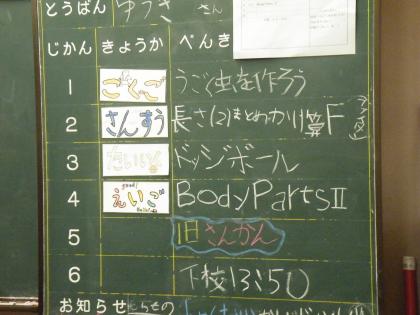 とうばん ゆうき さん
じかん きょうか べんき
1 こくご うごく虫を作ろう
2 さんすう 長さ(2)まとめ
3 たいいく ドッジボール
4 えいご BodyPartsⅡ
5 旧さんかん
6 下校13:50
お知らせ